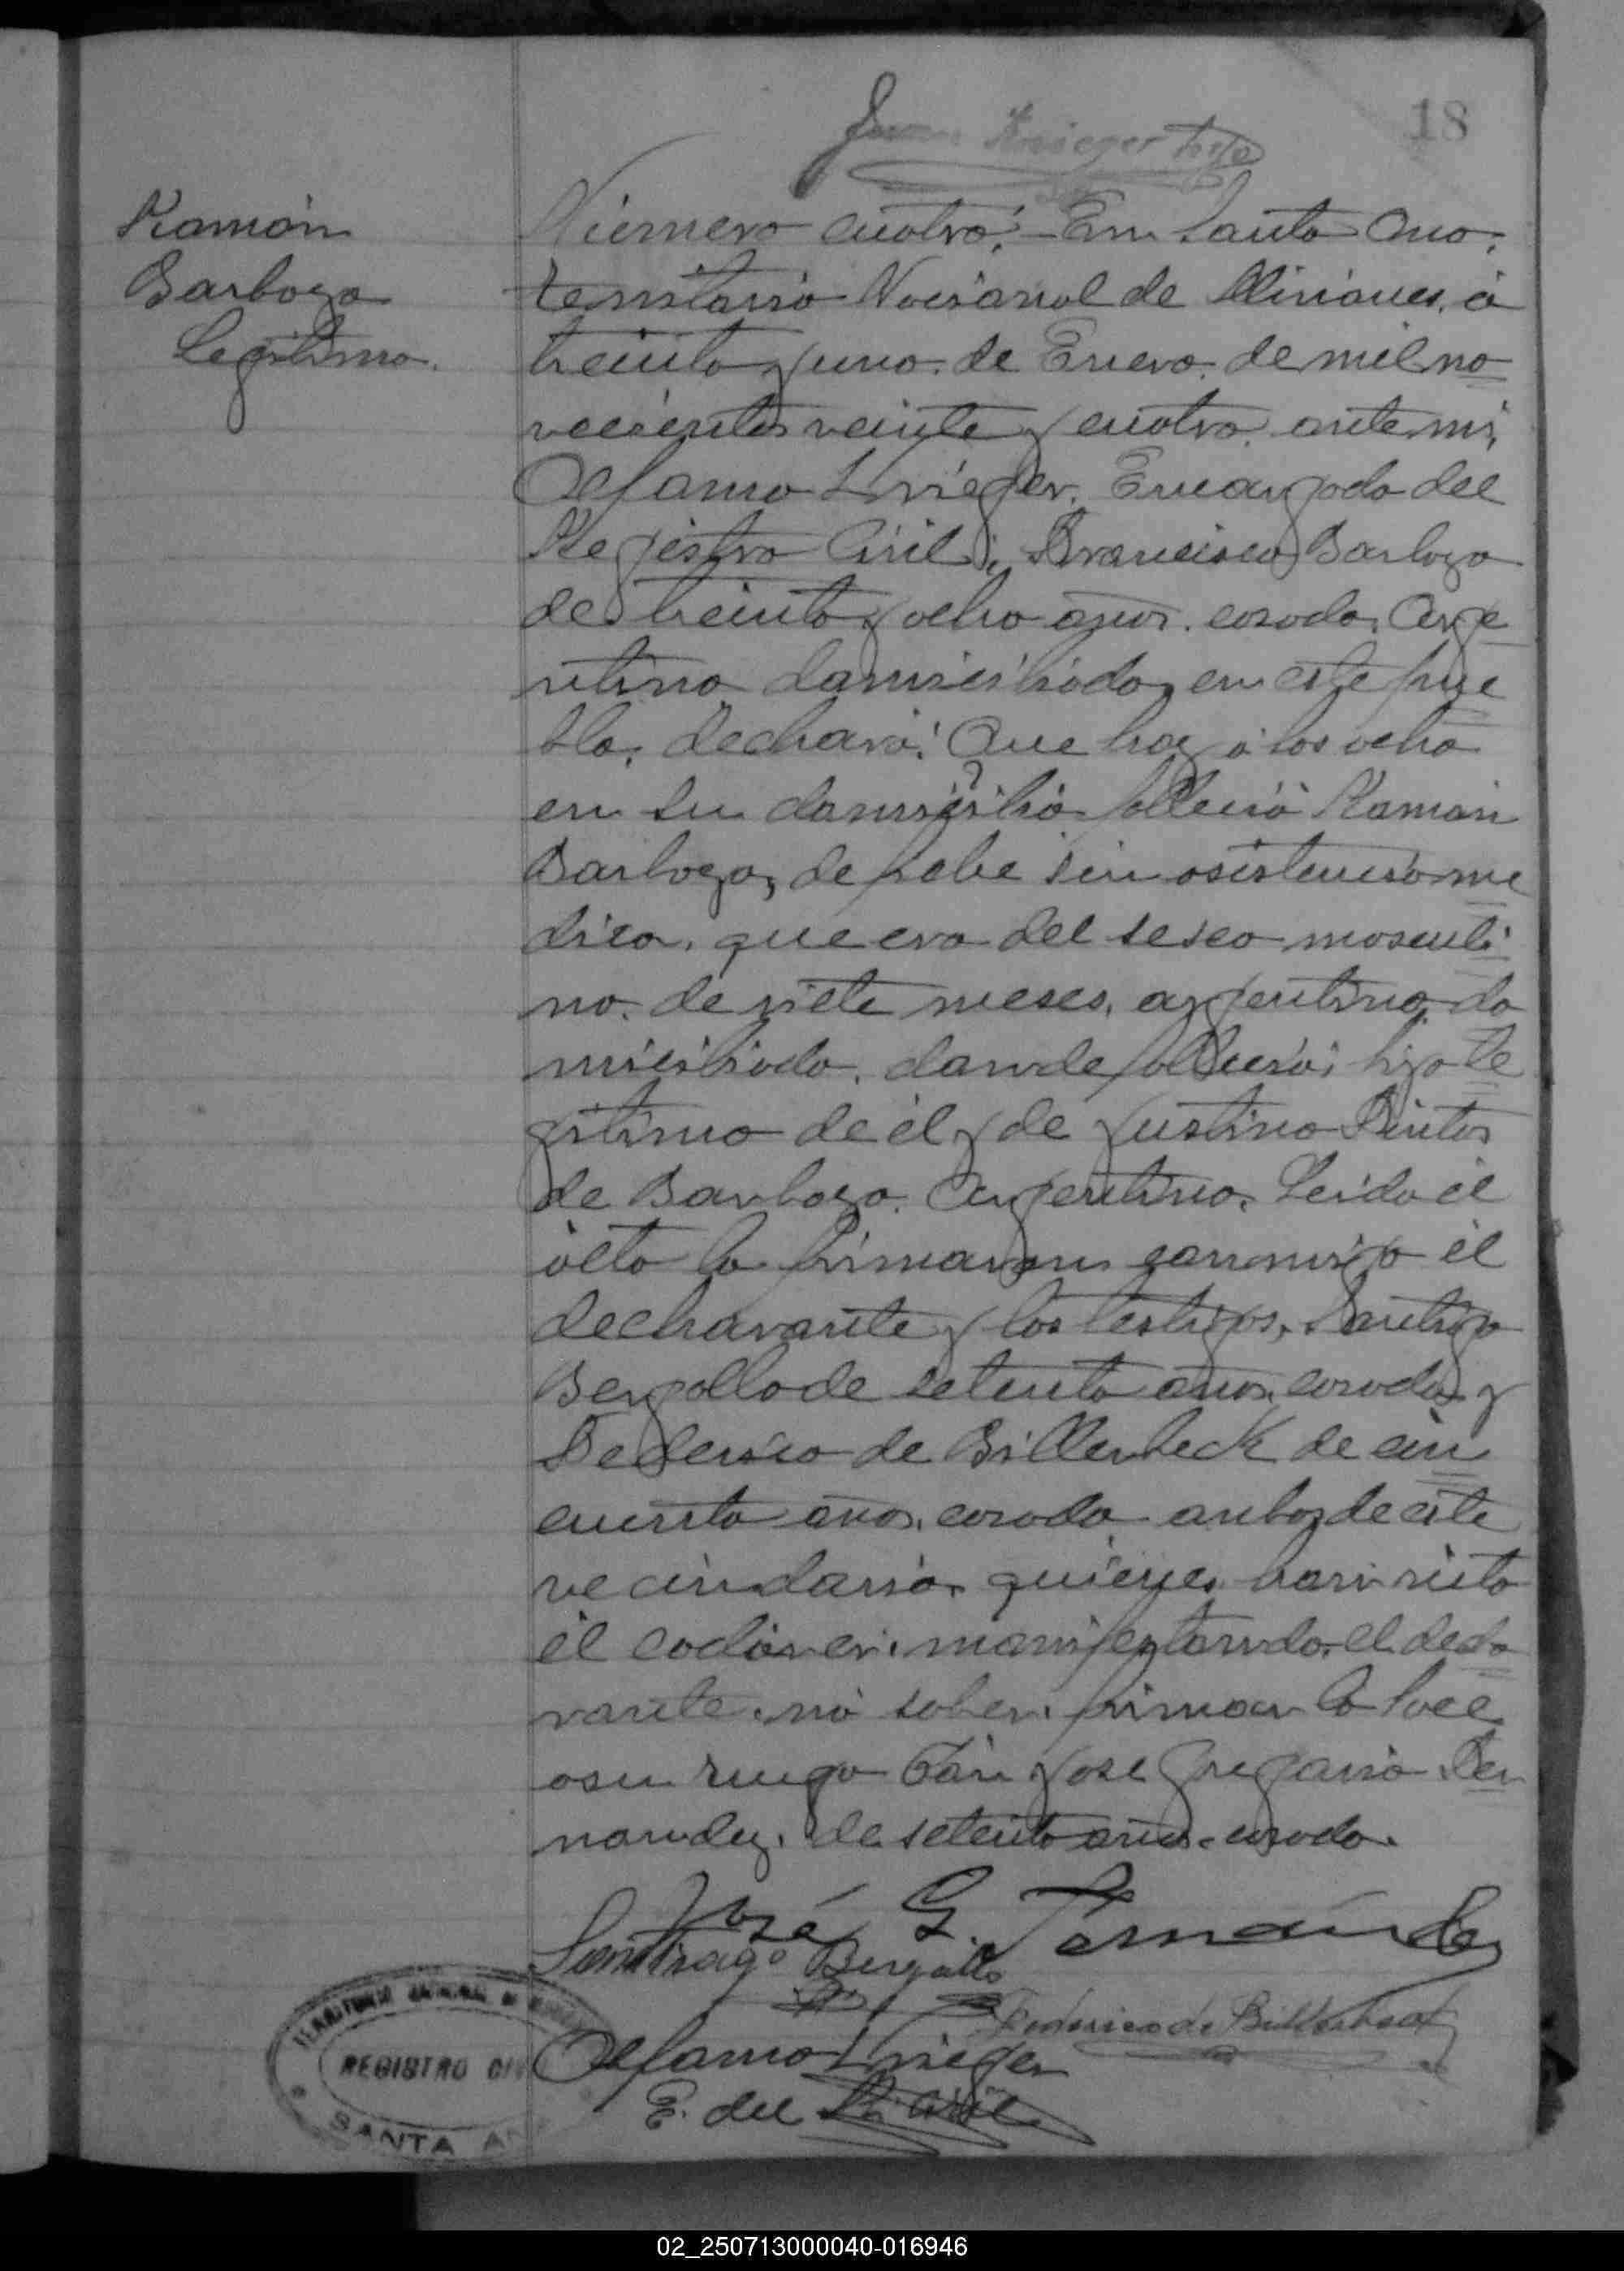 18
Juan Krieger hijo
Ramón
Barboza
Legitimo.
Número cuatro: En Santa Ana,
territorio Nacional de Misiones, á
treinta y uno de Enero de mil no
vecientos veinte y cuatro, ante mi,
Krieger, Encargado del
Registro Civil; Francisco Barboza
de treinta y ocho años, casado, Arge
ntino, domiciliado, en este pue
blo, declaró: Que hoy á las ocho
en su domicilio falleció Ramón
Barboza, de fiebe sin asistencia me
dica, que era del sesco masculi
no, de siete meses, argentino, do
miciliado, donde falleció; hijo le
gitimo de él y de Justina Pintos
de Barboza, Argentina. Leida él
acta la firmaron conmigo él
declarante y los testigos, Santiago
Bergallo de setenta años, casado y
Federico de Billerbeck de cin
cuenta años, casado ambos de este
vecindario, quienes han visto
él cadáver; manifestando el decla
rante, no saber firmar lo hace
a su ruego Don José Gregorio Fer
nandez, de setenta años casado.
José G. Fernández
Santiago Bergallo
Federico de Billerbeck
Krieger
E. del R. Civil
TERRITORIO NACIONAL DE
REGISTRO CIVIL
SANTA ANA
02_250713000040-016946